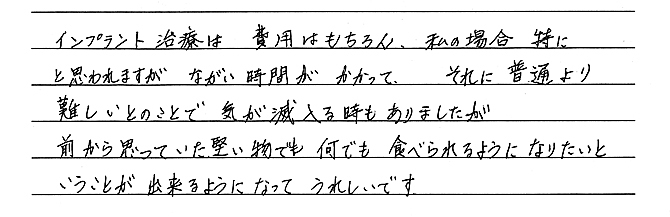 インプラント治療は 費用はもちろん、私の場合 特に
と思われますが ながい時間が かかって、 それに 普通より
難しいとのことで 気が滅入る時も ありましたが
前から思っていた堅い物でも 何でも 食べられるように なりたいと
いうことが 出来るように なって うれしいです